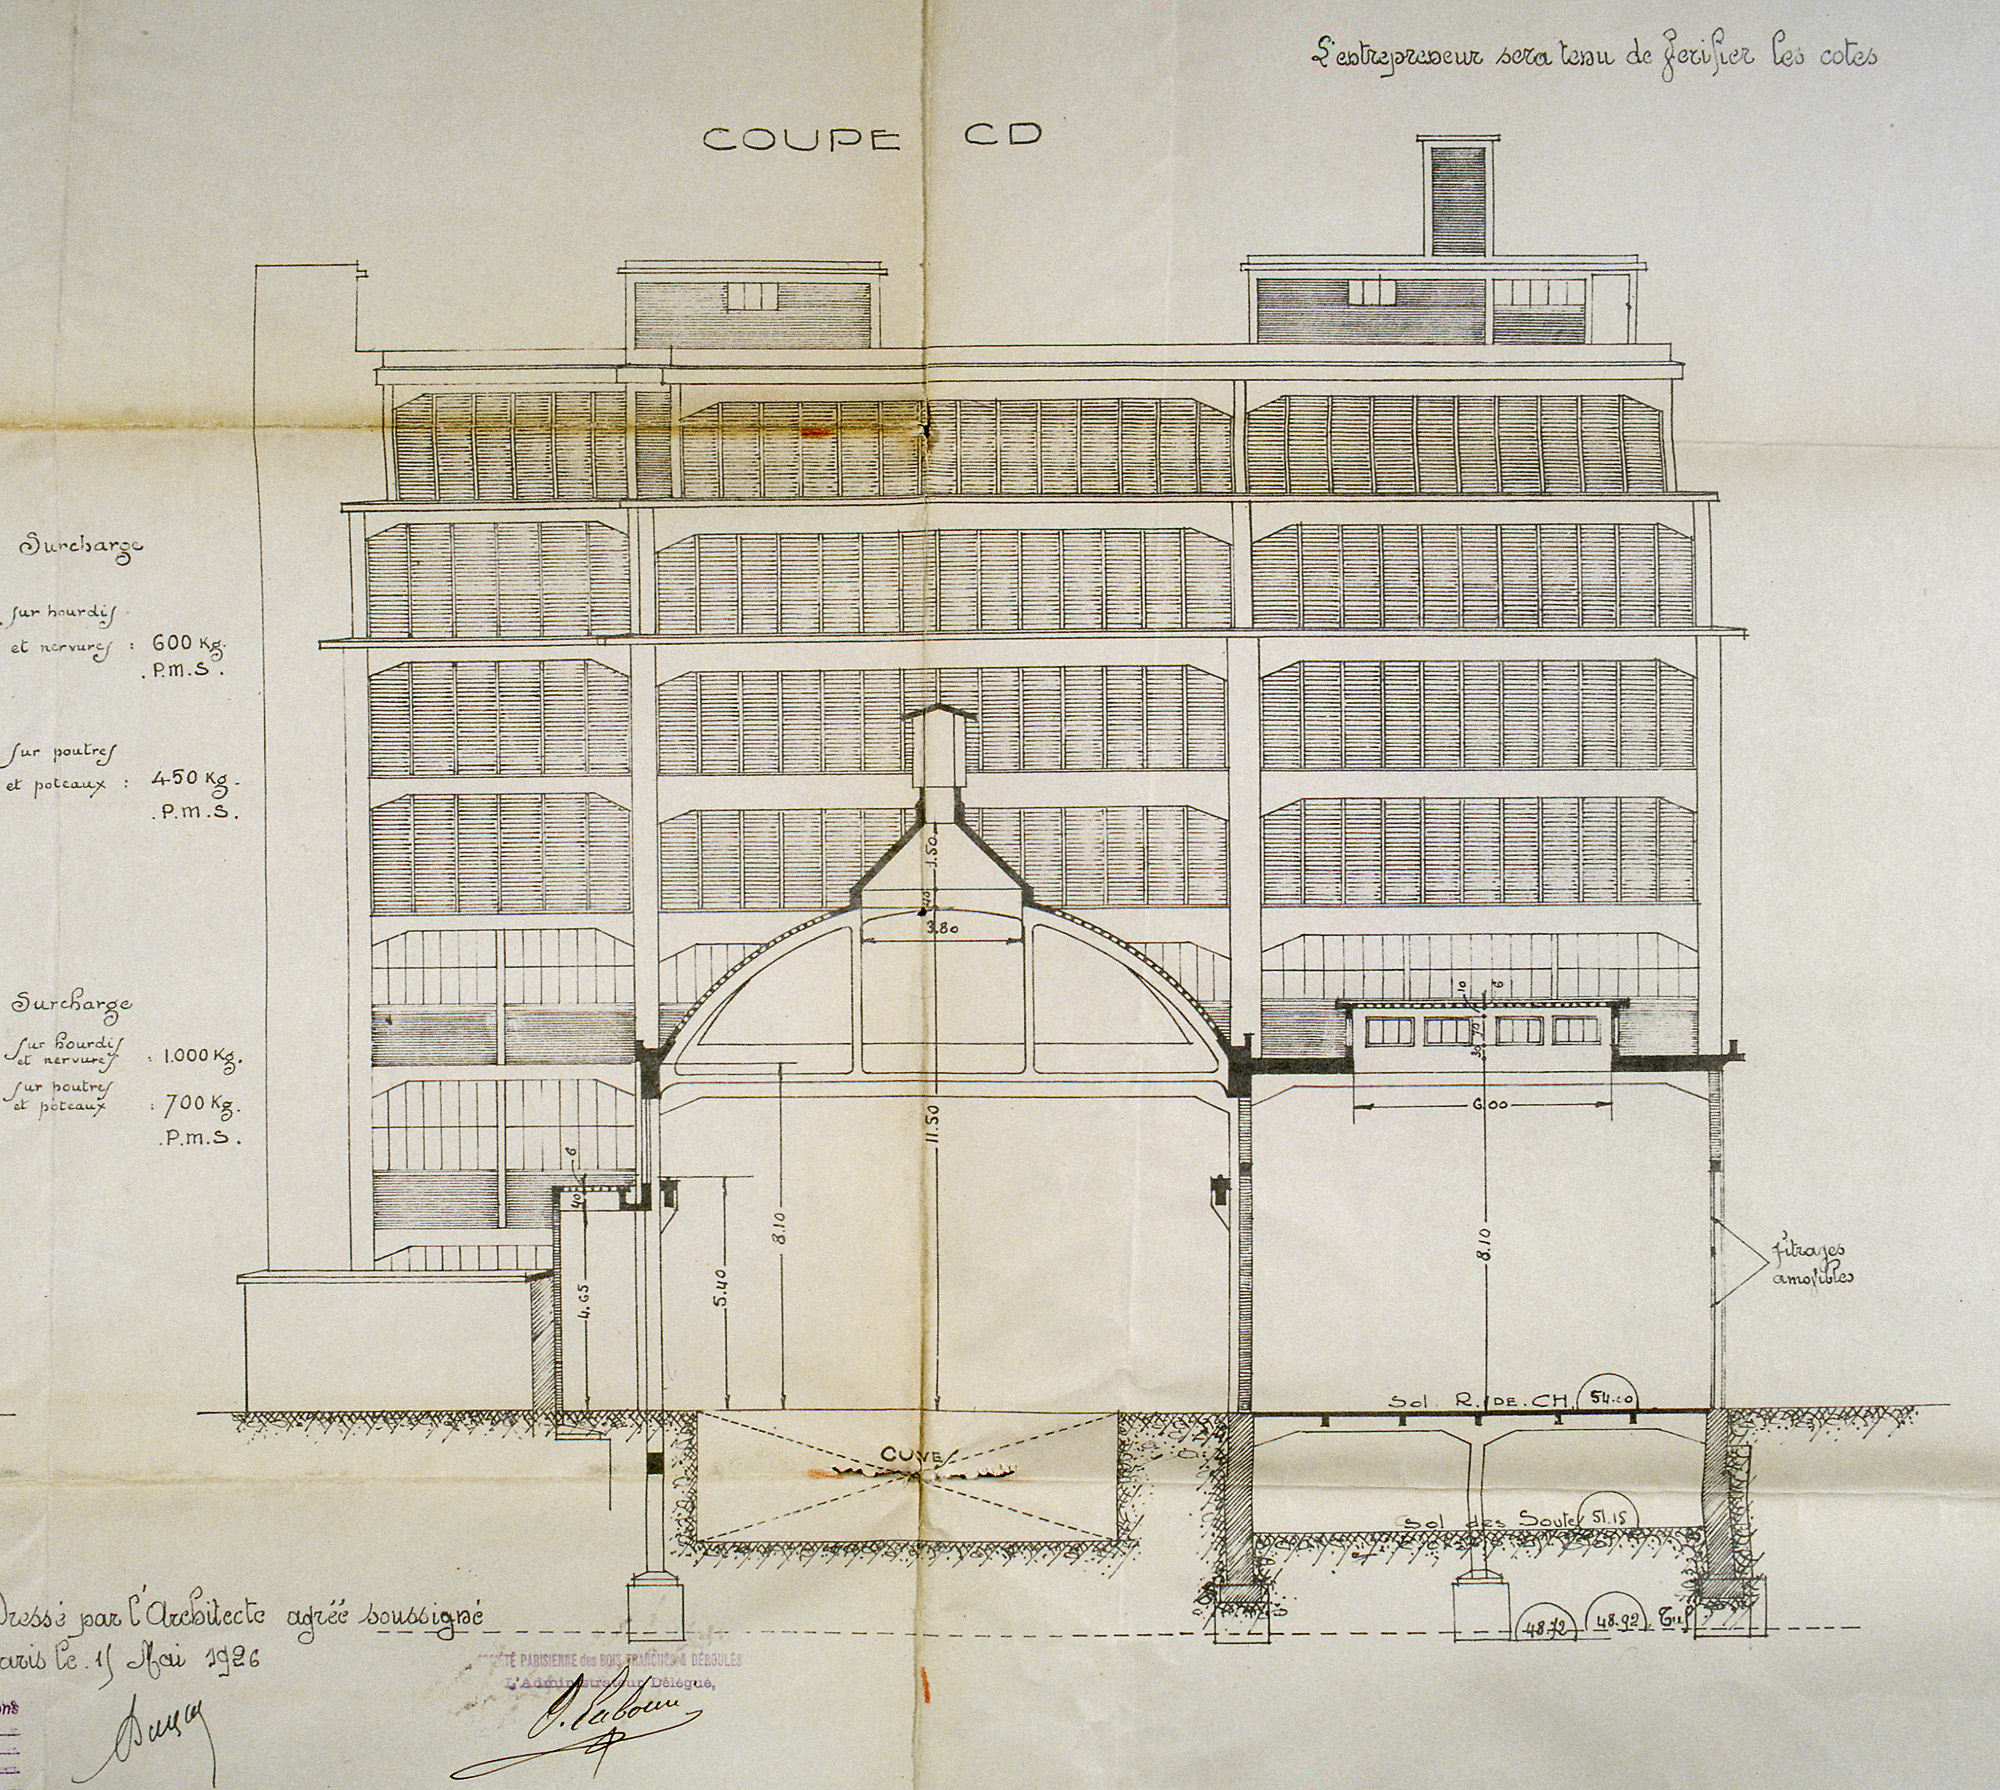 L'entrepreneur sera tenu de Verifier les cotes
COUPE CD
Surcharge
sur hourdis
et nervures : 600 Kg.
.P.m.S.
sur poutres
et poteaux : 450 Kg.
.P.m.S.
Surcharge
sur hourdis
et nervures : 1.000 Kg.
sur poutres
et poteaux : 700 Kg.
.P.m.S.
1.50
40
3.80
11.50
8.10
5.40
4.65
40
6
10
6
70
30
6.00
8.10
Vitrages
amovibles
Sol R. DE. CH. 54.00
CUVE
Sol des Soutes 51.15
48.72
48.92 Tuf
Dressé par l'Architecte agréé soussigné
aris le. 15 Mai 1926
SOCIÉTÉ PARISIENNE des BOIS TRANCHÉS & DÉROULÉS
L'Administrateur Délégué,